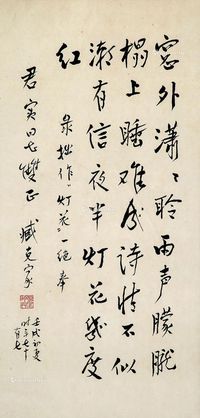 窗外潇潇聆雨声朦胧
榻上睡难成诗情不似
潮有信夜半灯花幾度
红
录拙作《灯花》一绝奉
君寅同志雙正
臧克家
壬戌初夏
时年七十
有七